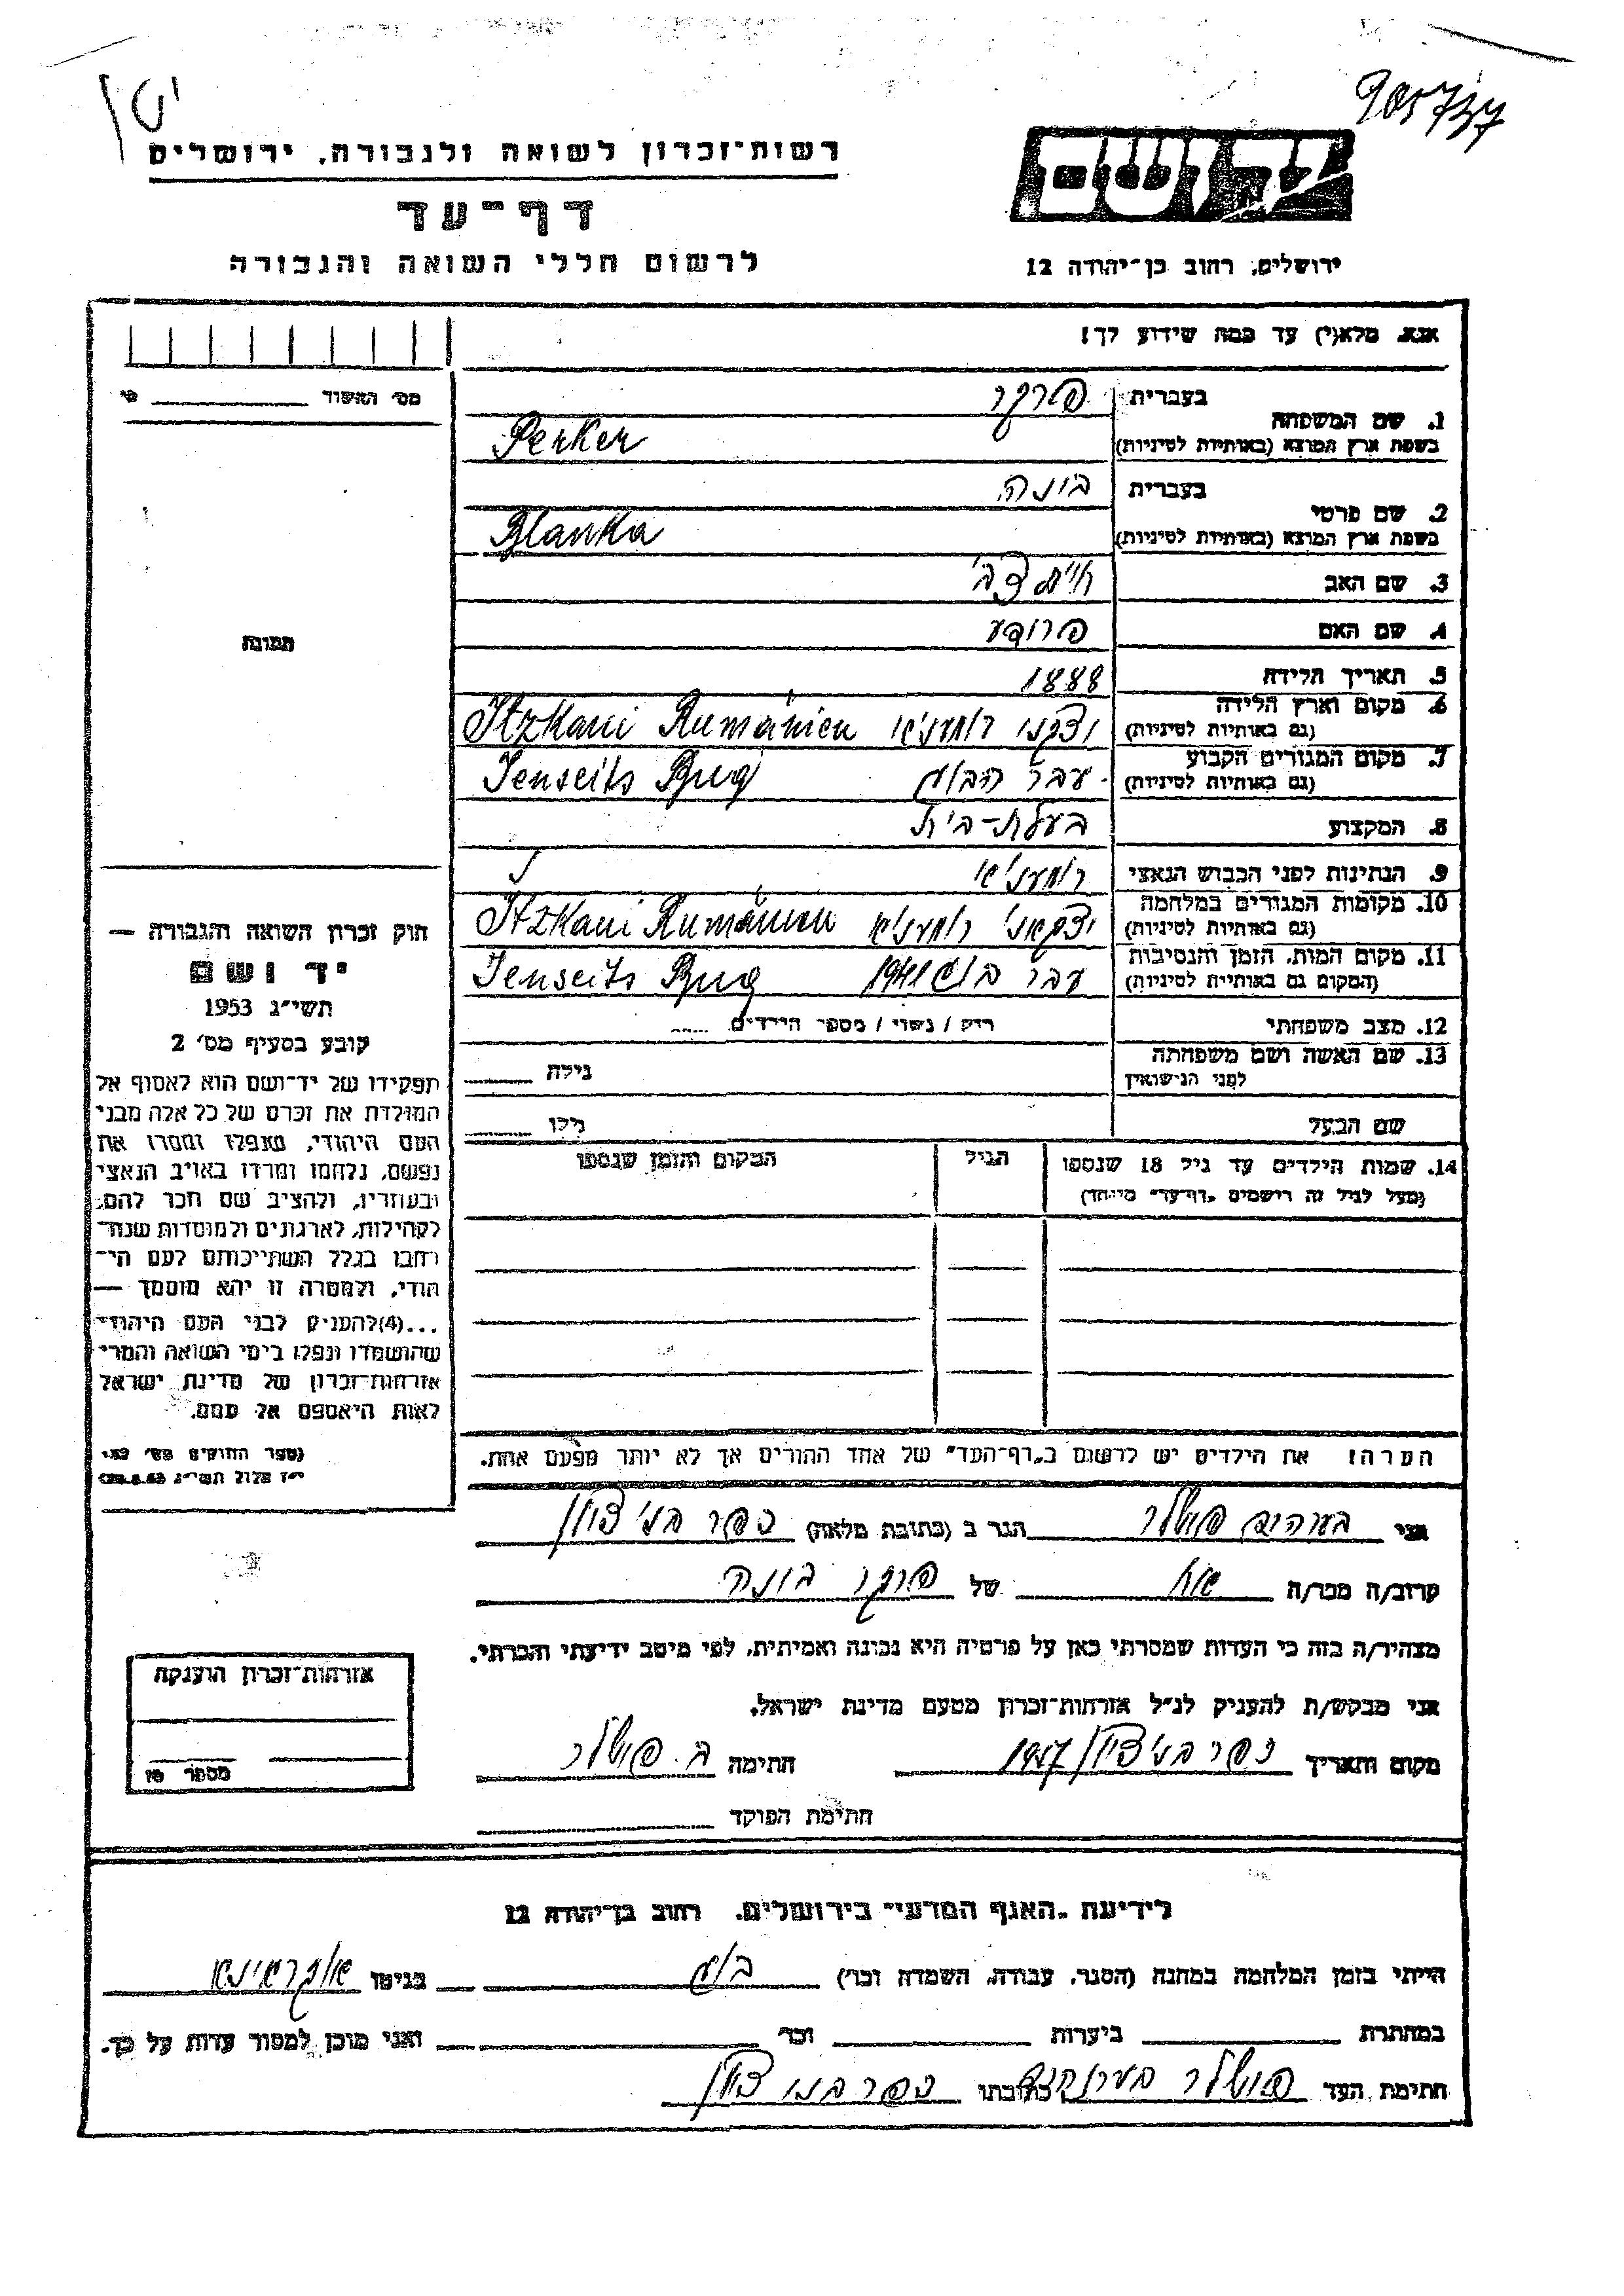 905737
רשות־זכרון לשואה ולגבורה, ירושלים
דף־עד
לרשום חללי השואה והגבורה
ירושלים, רחוב בן־יהודה 12
אנא, מלא(י) עד כמה שידוע לך!
מס' האשור
1. שם המשפחה בעברית פרקר
בשפת ארץ המוצא (באותיות לטיניות) Perker
2. שם פרטי בעברית בונה
בשפת ארץ המוצא (באותיות לטיניות) Blanka
3. שם האב חיים צבי
4. שם האם
5. תאריך הלידה 1888
6. מקום וארץ הלידה
(גם באותיות לטיניות) יצקני רומעניא Itzkani Rumänien
7. מקום המגורים הקבוע
(גם באותיות לטיניות) עבר הבוג Jenseits Bug
8. המקצוע בעלת-בית
9. הנתינות לפני הכבוש הנאצי רומעניא
10. מקומות המגורים במלחמה
(גם באותיות לטיניות) יצקאני רומעניא Itzkani Rumänien
11. מקום המות, הזמן והנסיבות
(המקום גם באותיות לטיניות) עבר בוג 1941 Jenseits Bug
12. מצב משפחתי רוק / נשוי / מספר הילדים
13. שם האשה ושם משפחתה
לפני הנישואין גילה
שם הבעל גילו
14. שמות הילדים עד גיל 18 שנספו הגיל המקום והזמן שנספו
(מעל לגיל זה רושמים „דף־עד" מיוחד)
הערה: את הילדים יש לרשום ב„דף־העד" של אחד ההורים אך לא יותר מפעם אחת.
תמונה
חוק זכרון השואה והגבורה —
יד ושם
תשי"ג 1953
קובע בסעיף מס' 2
תפקידו של יד־ושם הוא לאסוף אל
המולדת את זכרם של כל אלה מבני
העם היהודי, שנפלו ומסרו את
נפשם, נלחמו ומרדו באויב הנאצי
ובעוזריו, ולהציב שם וזכר להם,
לקהילות, לארגונים ולמוסדות שנח־
רבו בגלל השתייכותם לעם הי־
הודי, ולמטרה זו יהא מוסמך —
...(4)להעניק לבני העם היהודי
שהושמדו ונפלו בימי השואה והמרי
אזרחות־זכרון של מדינת ישראל
לאות היאספם אל עמם.
(ספר החוקים מס' 132,
י"ז אלול תשי"ג 28.8.53)
אני הגר ב (כתובת מלאה) כפר בני ציון
קרוב/ה מכר/ה אח של פרקר בונה
מצהיר/ה בזה כי העדות שמסרתי כאן על פרטיה היא נכונה ואמיתית, לפי מיטב ידיעתי והכרתי.
אני מבקש/ת להעניק לנ"ל אזרחות־זכרון מטעם מדינת ישראל.
מקום ותאריך כפר בני ציון 1957 חתימה
חתימת הפוקד
אזרחות־זכרון הוענקה
מספר
לידיעת „האגף המדעי" בירושלים, רחוב בן־יהודה 12
הייתי בזמן המלחמה במחנה (הסגר, עבודה, השמדה וכו') בוג בגיטו אוקראינא
במחתרת ביערות וכו' ואני מוכן למסור עדות על כך.
חתימת העד כתובתו כפר בני ציון